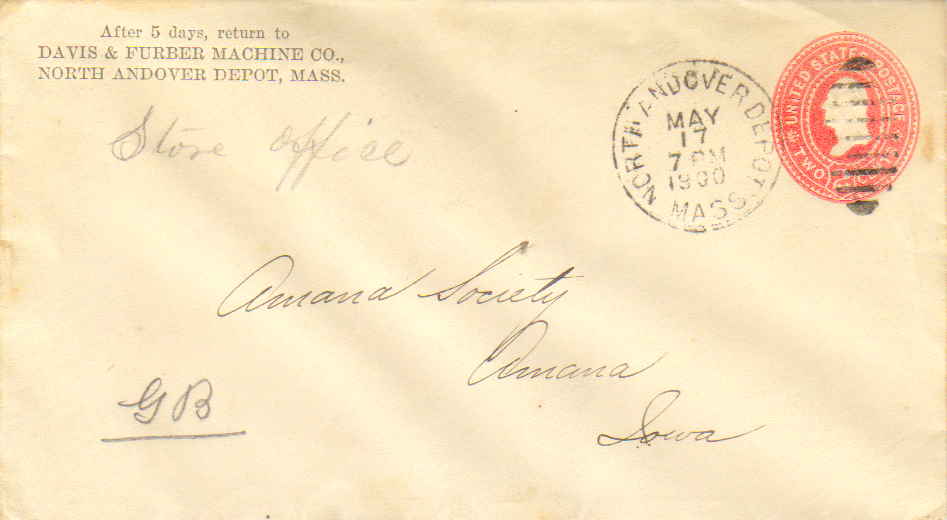 After 5 days, return to
DAVIS & FURBER MACHINE CO.,
NORTH ANDOVER DEPOT, MASS.
Store Office
NORTH ANDOVER DEPOT
MAY
17
7 PM
1900
MASS.
UNITED STATES POSTAGE
TWO
Amana Society
Amana
Iowa
GB